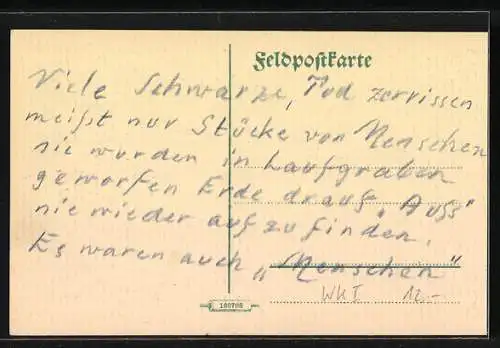 Feldpostkarte
Viele Schwarze, Tod zerrissen
meißt nur Stücke von Menschen
sie wurden in Laufgraben
geworfen Erde drauf, "Auss"
nie wieder auf zu finden.
Es waren auch „Menschen"
WK I 12.-